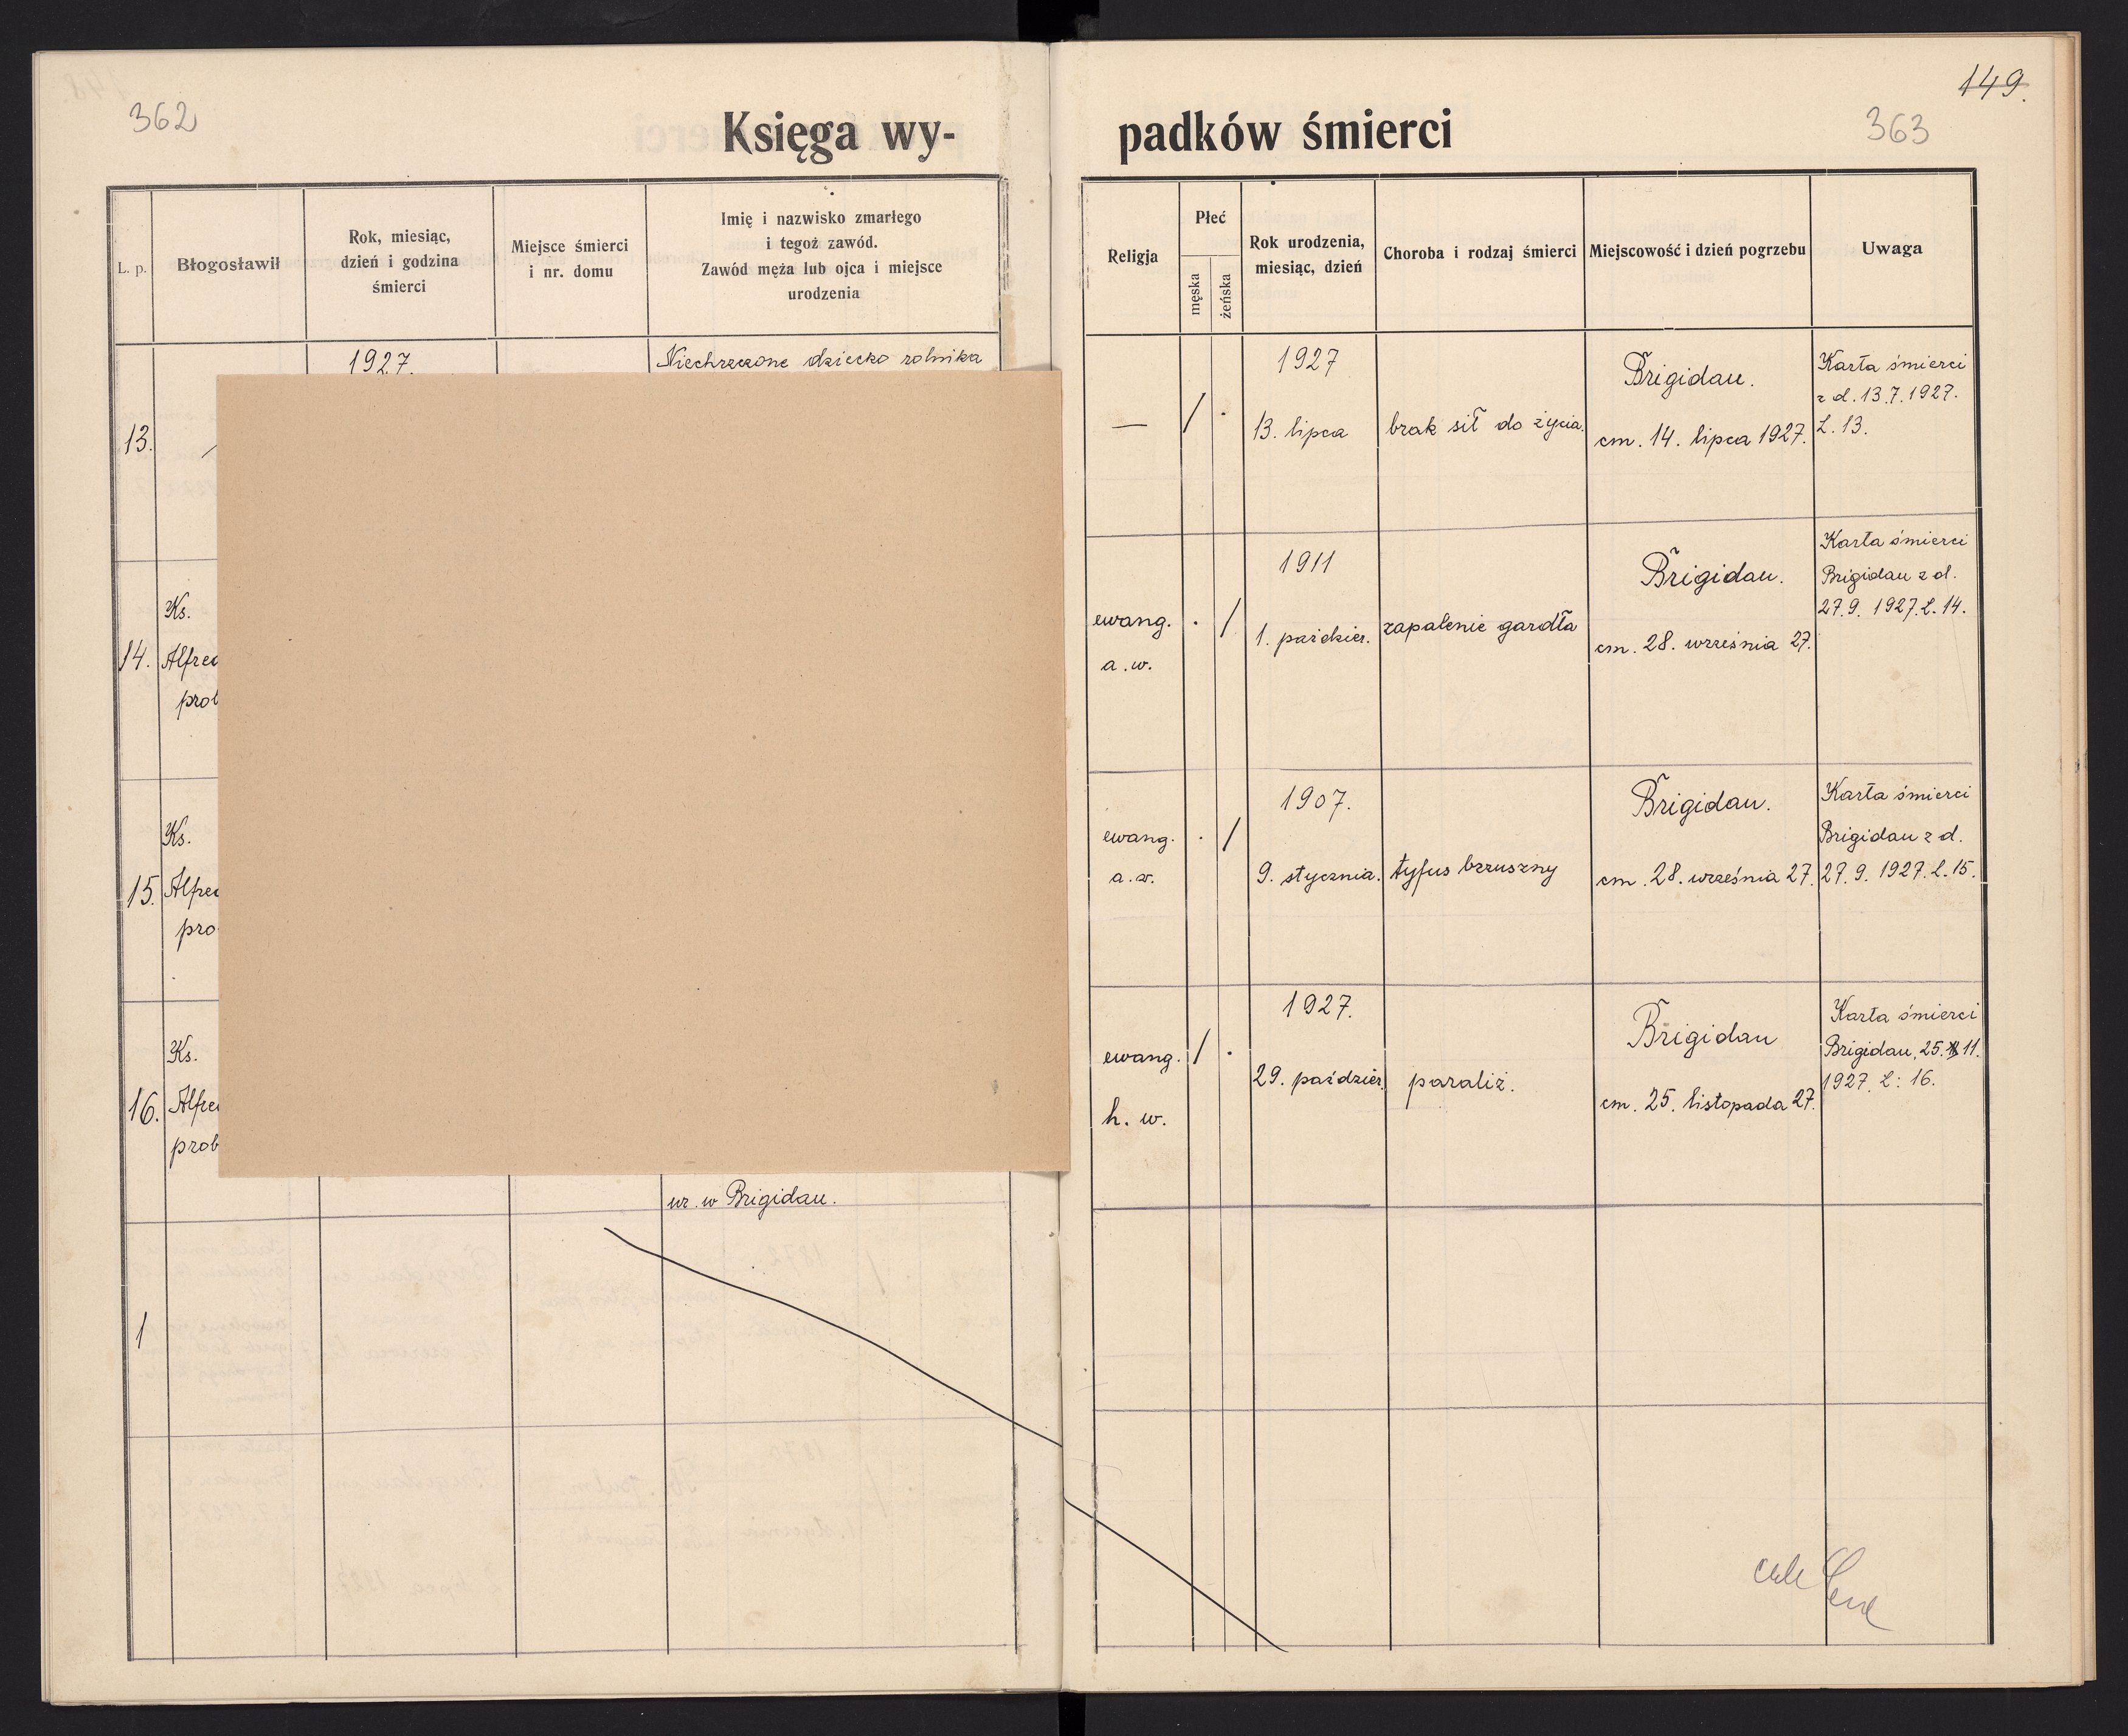 362
Księga wy-
L. p.
Błogosławił
Rok, miesiąc,
dzień i godzina
śmierci
Miejsce śmierci
i nr. domu
Imię i nazwisko zmarłego
i tegoż zawód.
Zawód męża lub ojca i miejsce
urodzenia
1927.
Niechrzczone dziecko rolnika
13.
14.
Ks.
Alfred
prob
15.
Ks.
Alfred
pro
16.
Ks.
Alfre
prob
ur. w Brigidau.
1
149.
363
padków śmierci
Religja
Płeć
męska
żeńska
Rok urodzenia,
miesiąc, dzień
Choroba i rodzaj śmierci
Miejscowość i dzień pogrzebu
Uwaga
—
/
.
1927
13. lipca
brak sił do życia.
Brigidau.
cm. 14. lipca 1927.
Karta śmierci
z d. 13.7.1927.
L. 13.
ewang.
a. w.
.
/
1911
1. paździer.
zapalenie gardła
Brigidau.
cm. 28. września 27.
Karta śmierci
Brigidau z d.
27.9. 1927. L. 14.
ewang.
a. w.
.
/
1907.
9. stycznia.
tyfus brzuszny
Brigidau.
cm. 28. września 27.
Karta śmierci
Brigidau z d.
27. 9. 1927. L. 15.
ewang.
h. w.
/
.
1927.
29. paździer.
paraliż.
Brigidau
cm. 25. listopada 27.
Karta śmierci
Brigidau, 25. 11.
1927. L: 16.